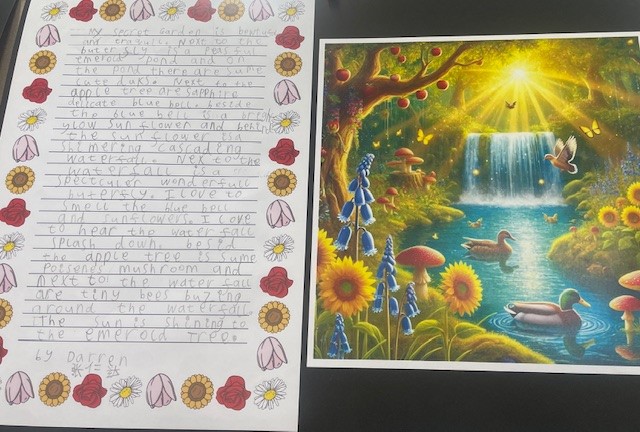 My secret Garden is beautiful
and tranquil. Next to the
butterfly is a peasful
emerous pond and on
the pond there are sume
cute duks. Next to the
apple tree are sapphire
delicate blue bell. beside
the blue bell is a brit
ylow sun flower and behind
the sun flower is a
shimering cascading
waterfall. Nex to the
waterfall is a
spectculer wonderfull
buterfly. I love to
smell the blue bell
and sunflowers. I love
to hear the water fall
splash down. besid
the apple tree is sume
poisenes mushroom and
next to the water fall
are tiny bees buzing
around the waterfall.
The sun is shining to
the emerold tree.
by Darren